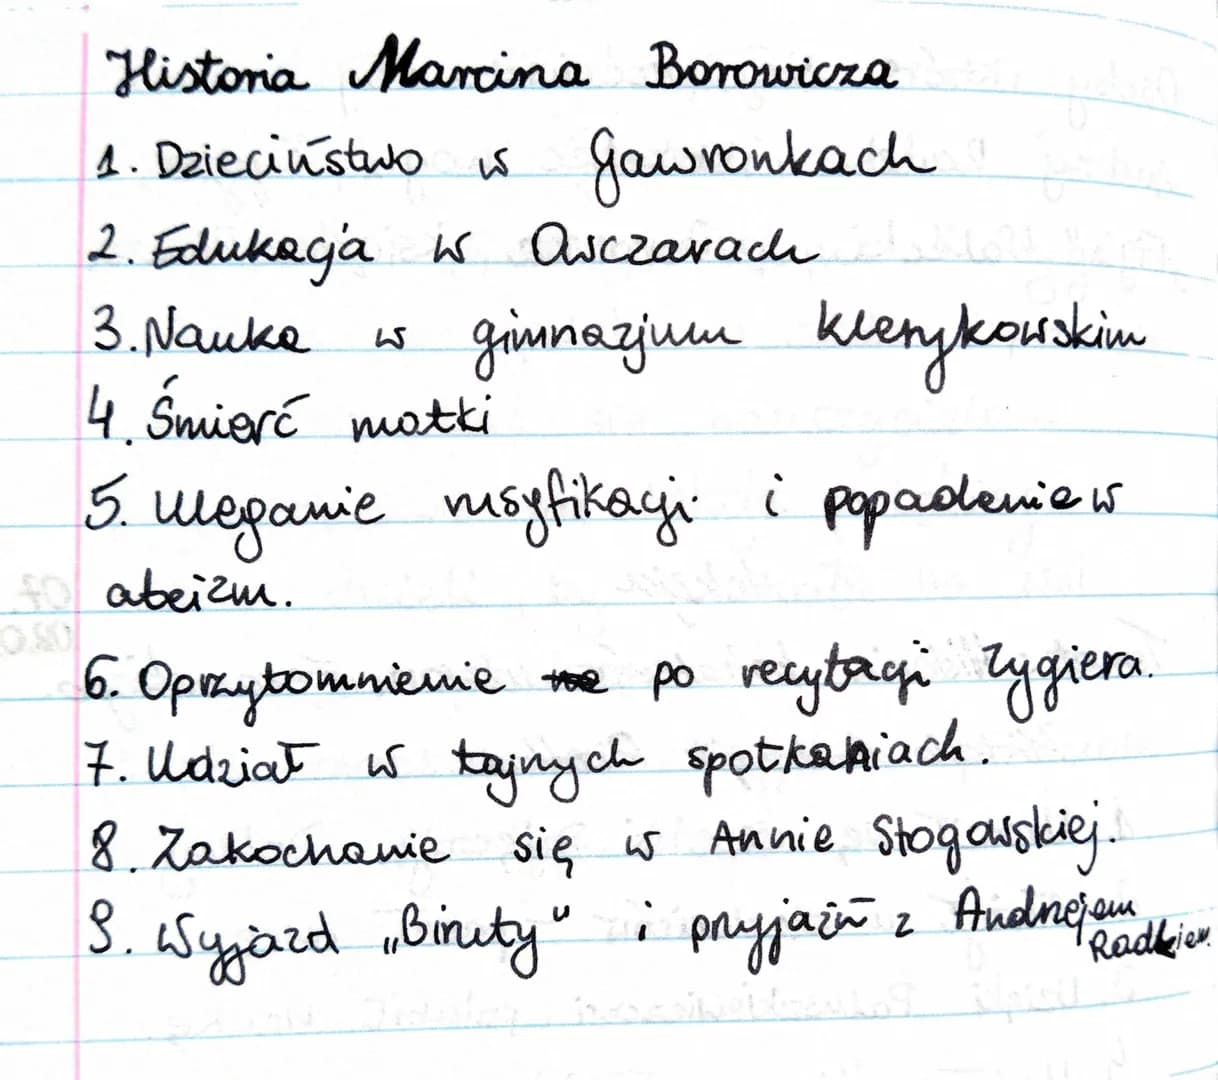 Historia Marcina Borowicza
1. Dzieciństwo w Gawronkach
2. Edukacja w Owczarach
3. Nauka w gimnazjum klerykowskim
4. Śmierć matki
5. Uleganie rusyfikacji i popadanie w
ateizm.
6. Oprzytomnienie po recytacji Zygiera.
7. Udział w tajnych spotkaniach.
8. Zakochanie się w Annie Stogowskiej.
9. Wyjazd „Biruty" i przyjaźń z Andrzejem
Radkiem.